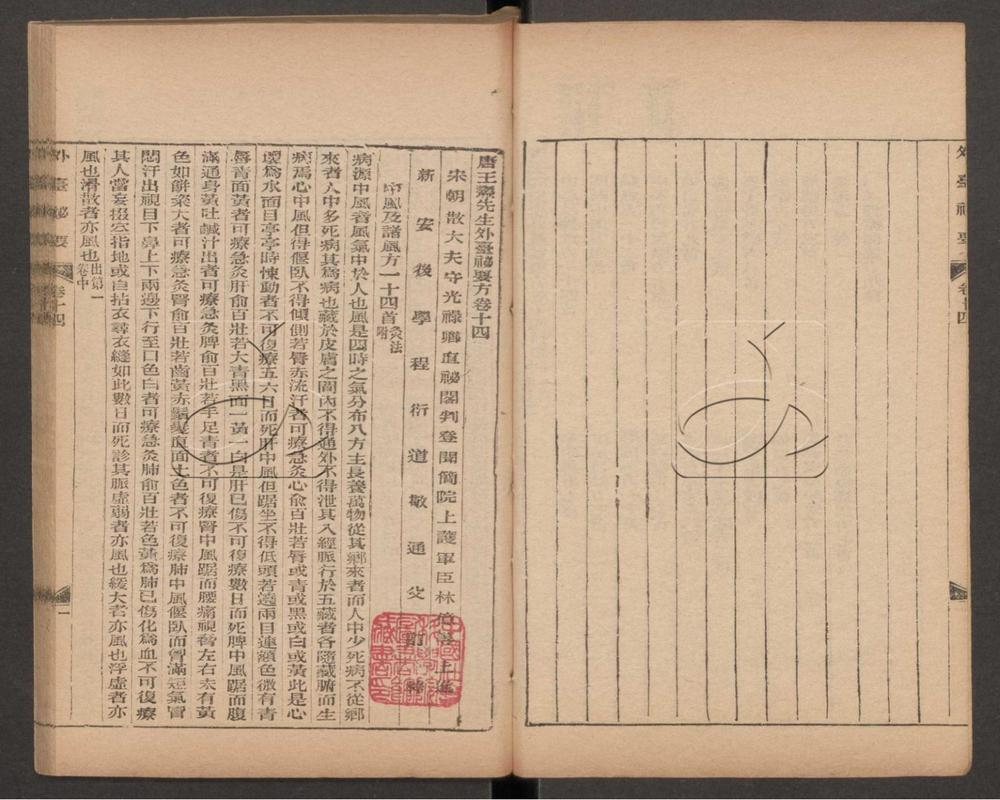 外臺祕要
卷十四
唐王燾先生外臺祕要方卷十四
宋朝散大夫守光祿卿直祕閣判登聞簡院上護軍臣林億等上進
新安後學程衍道敬通父訂
中風及諸風方一十四首灸法附
病源中風者風氣中於人也風是四時之氣分布八方主長養萬物從其鄉來者而人中少死病不從鄉
來者人中多死病其為病也藏於皮膚之間內不得通外不得泄其入經脈行於五藏者各隨藏腑而生
病焉心中風但得偃臥不得傾側若脣赤流汗者可療急灸心俞百壯若脣或青或黑或白或黃此是心
壞為水面目亭亭時悚動者不可復療五六日而死肝中風但踞坐不得低頭若遶兩目連額色微有青
脣青面黃者可療急灸肝俞百壯若大青黑面一黃一白是肝已傷不可復療數日而死脾中風踞而腹
滿通身黃吐鹹汁出者可療急灸脾俞百壯若手足青者不可復療腎中風踞而腰痛視脅左右未有黃
色如餅粢大者可療急灸腎俞百壯若齒黃赤鬢髮直面土色者不可復療肺中風偃臥而胷滿短氣冒
悶汗出視目下鼻上下兩邊下行至口色白者可療急灸肺俞百壯若色黃為肺已傷化為血不可復療
其人當妄掇空指地或自拈衣尋衣縫如此數日而死診其脈虛弱者亦風也緩大者亦風也浮虛者亦
風也滑散者亦風也出第一卷中
外臺祕要
卷十四
一